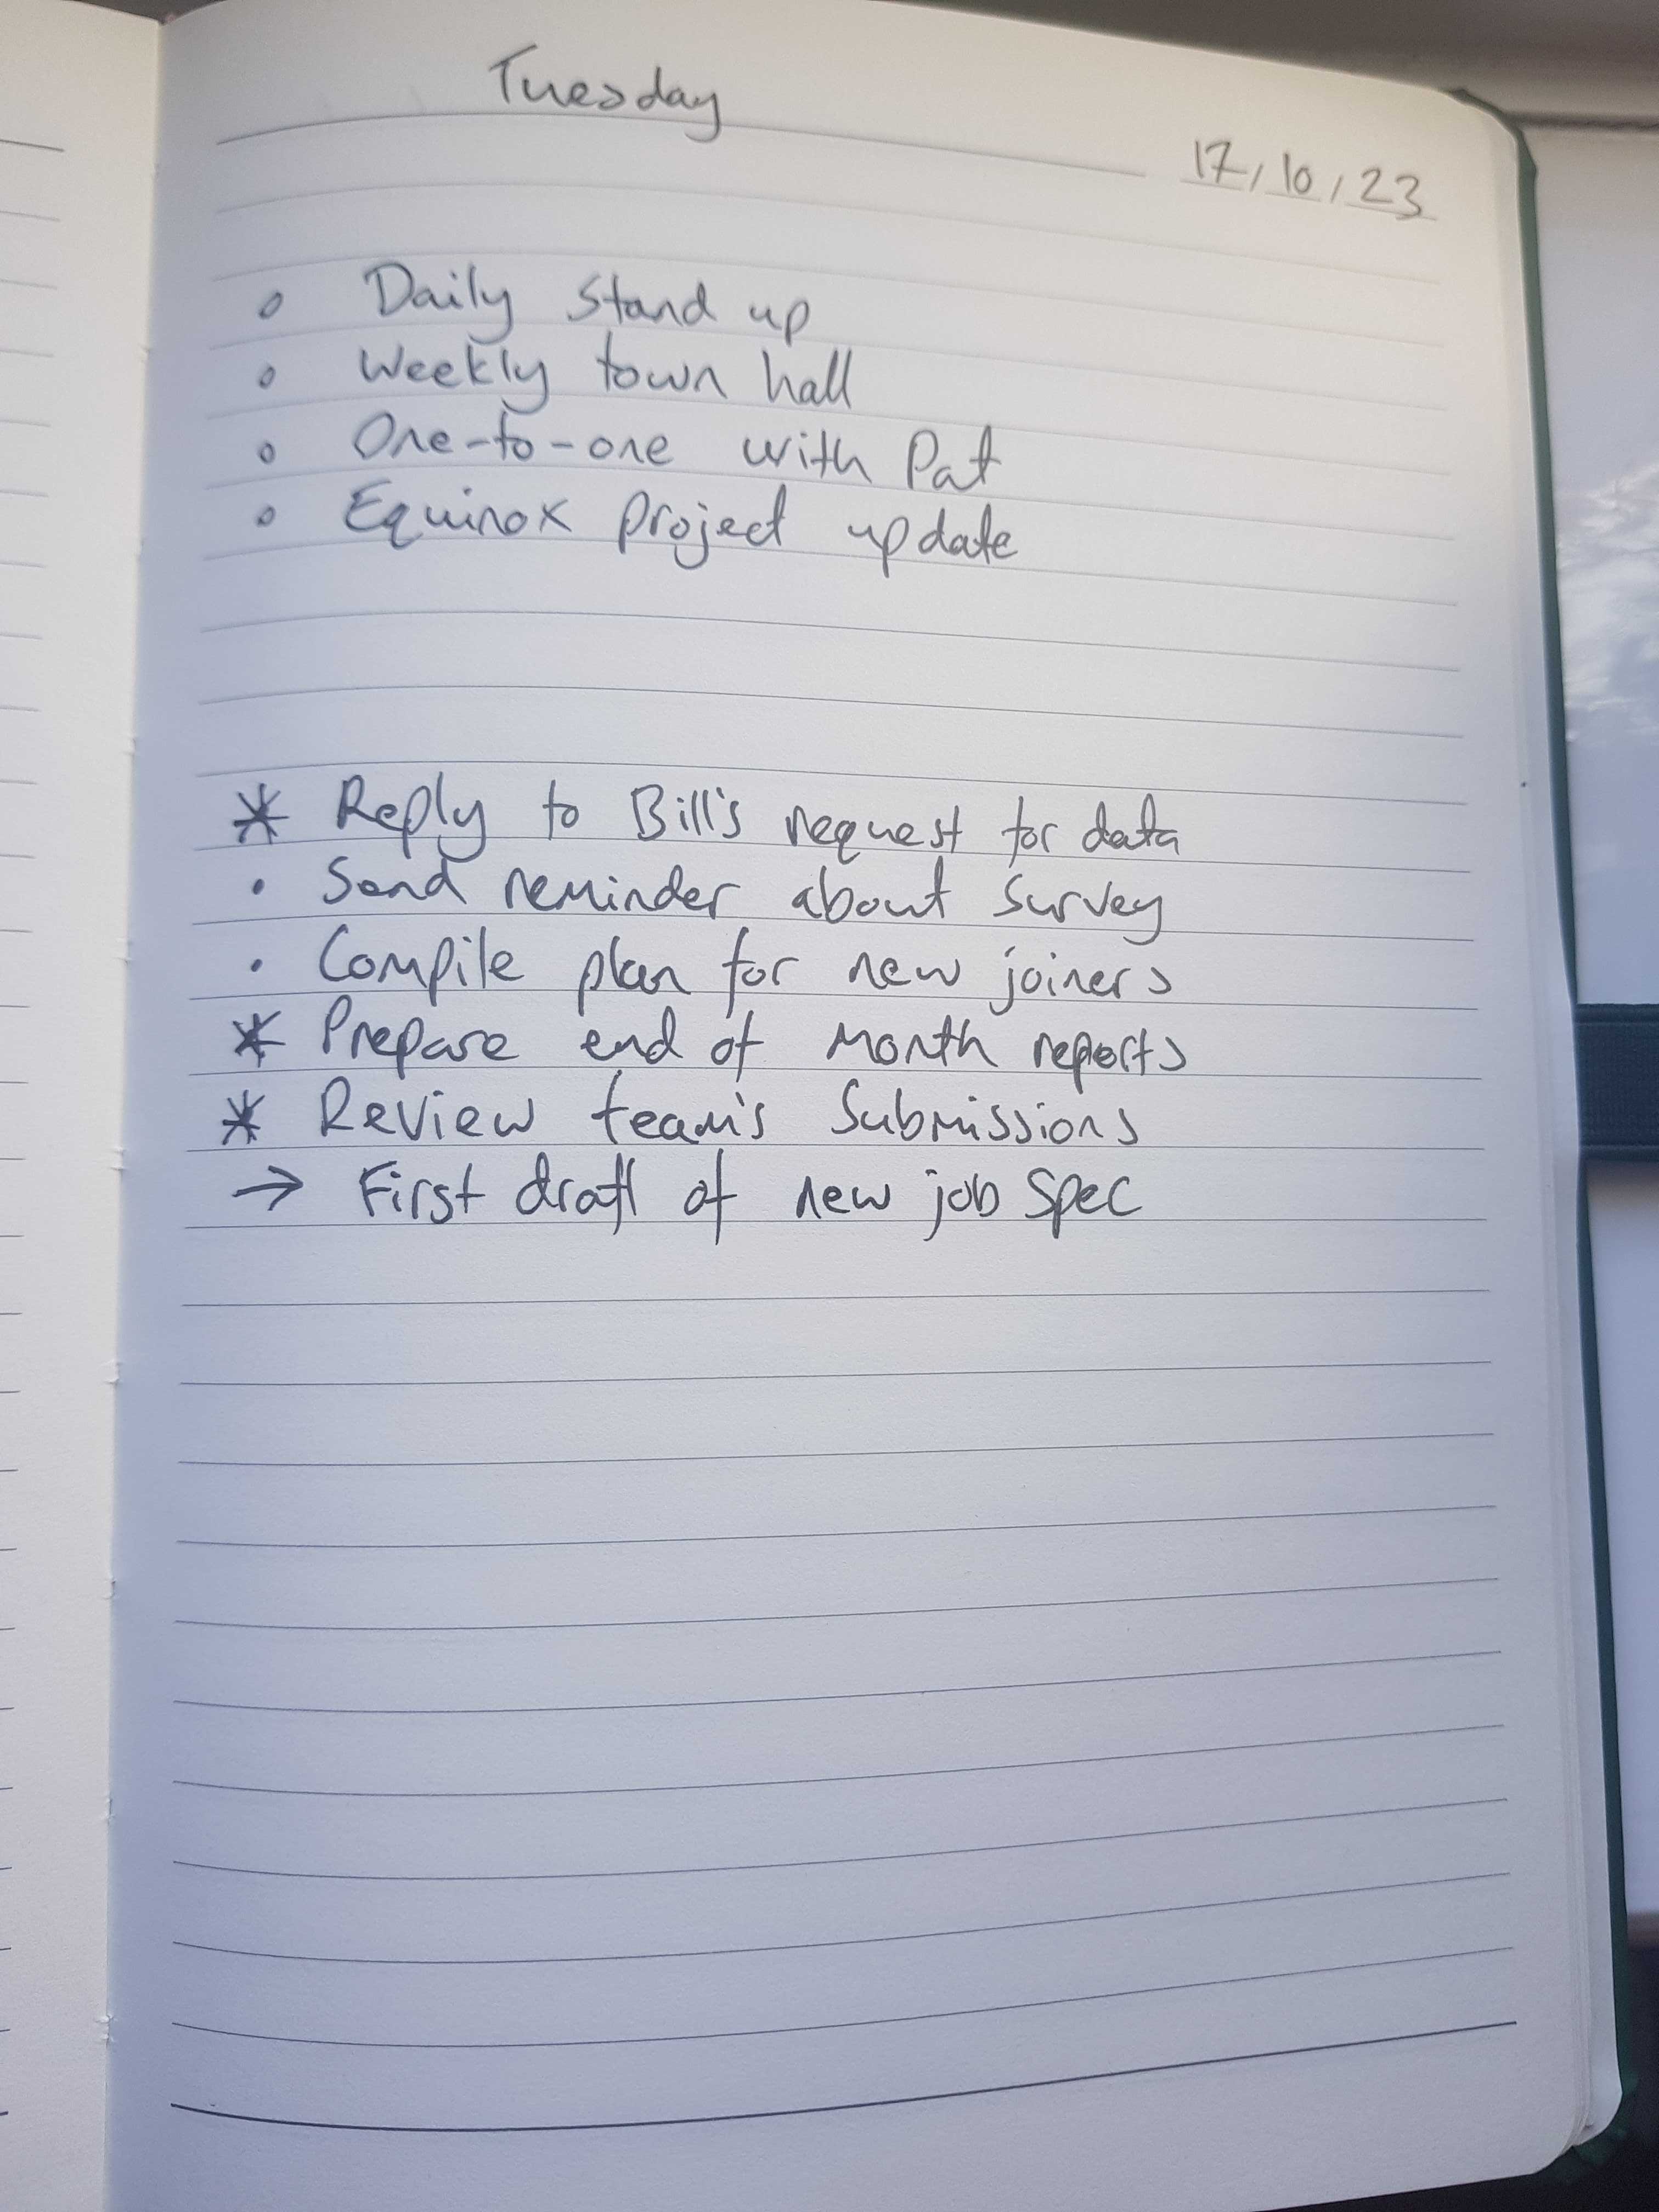 Tuesday
17/10/23
o Daily stand up
o Weekly town hall
o One-to-one with Pat
o Equinox project update
* Reply to Bill's request for data
• Send reminder about survey
• Compile plan for new joiners
* Prepare end of month reports
* Review team's submissions
→ First draft of new job spec